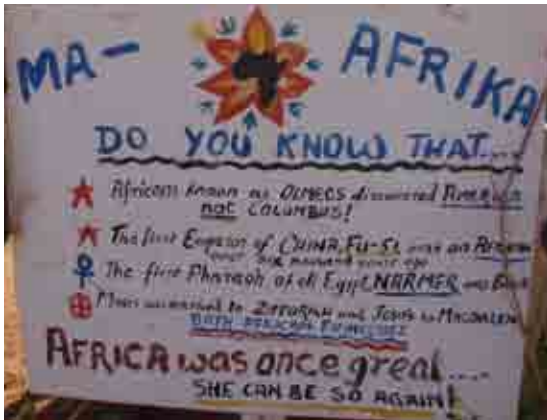 MA- AFRIKA
DO YOU KNOW THAT....
Africans known as OLMECS discovered AMERICA
not COLUMBUS!
The first Emperor of CHINA, FU-SI was an AFRICAN
over six thousand years ago
The first Pharaoh of all Egypt, NARMER was Black
Moses was married to ZIPPORAH and JESUS to MAGDALEN
BOTH AFRICAN PRINCESSES
AFRICA was once great.....
SHE CAN BE SO AGAIN!